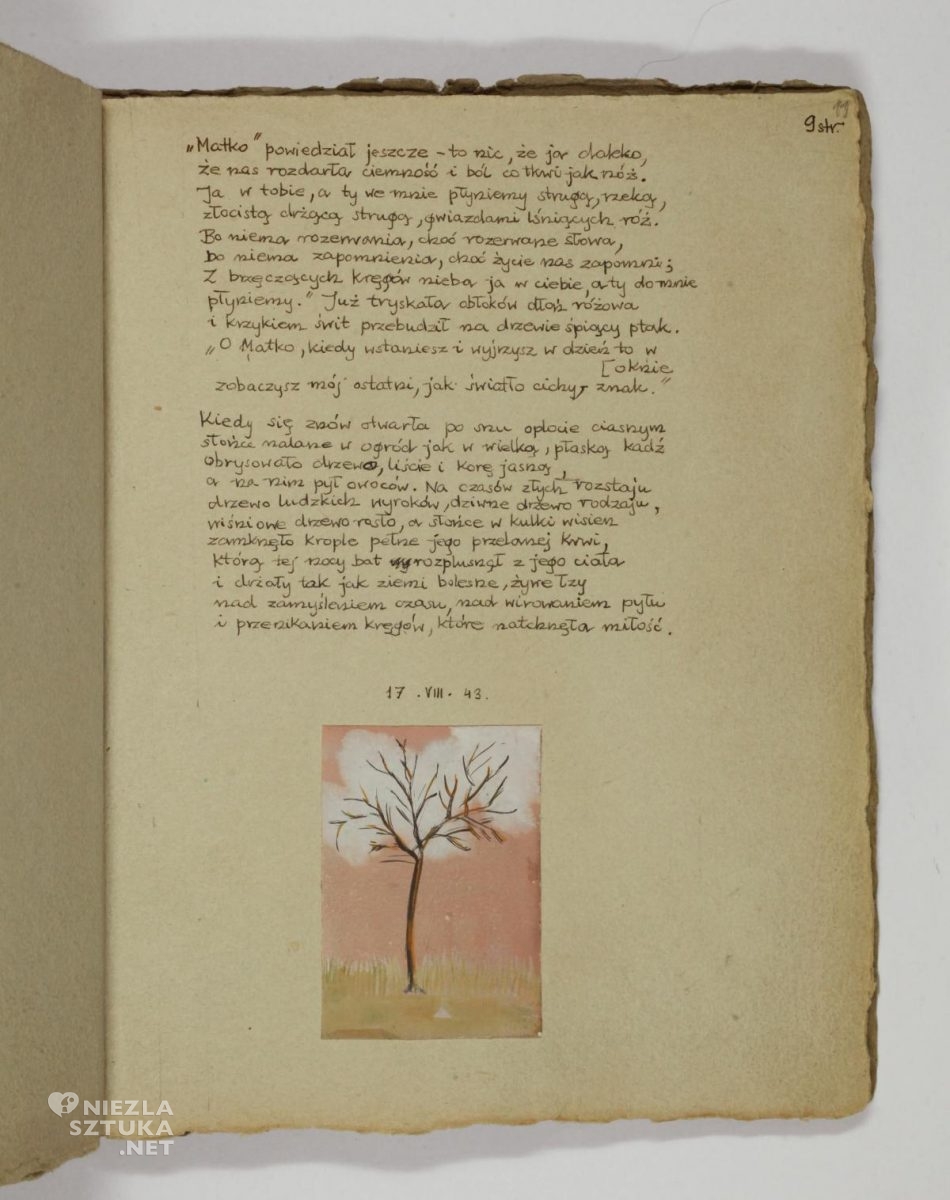 11
9 str.
„Matko" powiedział jeszcze – to nic, że ja daleko,
że nas rozdarła ciemność i ból co tkwi jak nóż.
Ja w tobie, a ty we mnie płyniemy strugą, rzeką,
złocistą drżącą strugą, gwiazdami lśniących róż.
Bo niema rozerwania, choć rozerwane słowa,
bo niema zapomnienia, choć życie nas zapomni;
Z brzęczących kręgów nieba ja w ciebie, a ty do mnie
płyniemy." Już tryskała obłoków dłoń różowa
i krzykiem świt przebudził na drzewie śpiący ptak.
„O Matko, kiedy wstaniesz i wyjrzysz w dzień to w
[oknie
zobaczysz mój ostatni, jak światło cichy znak."
Kiedy się znów otwarła po snu oplocie ciasnym
słońce nalane w ogród jak w wielką, płaską kadź
obrysowało drzewo, liście i korę jasną,
a na nim pył owoców. Na czasów złych rozstaju
drzewo ludzkich wyroków, dziwne drzewo rodzaju,
wiśniowe drzewo rosło, a słońce w kulki wisien
zamknęło krople pełne jego przelanej krwi,
którą tej nocy bat rozplusnął z jego ciała
i drżały tak jak ziemi bolesne, żywe łzy
nad zamyśleniem czasu, nad wirowaniem pyłu
i przenikaniem kręgów, które natchnęła miłość.
17 . VIII . 43.
NIEZLA
SZTUKA
.NET